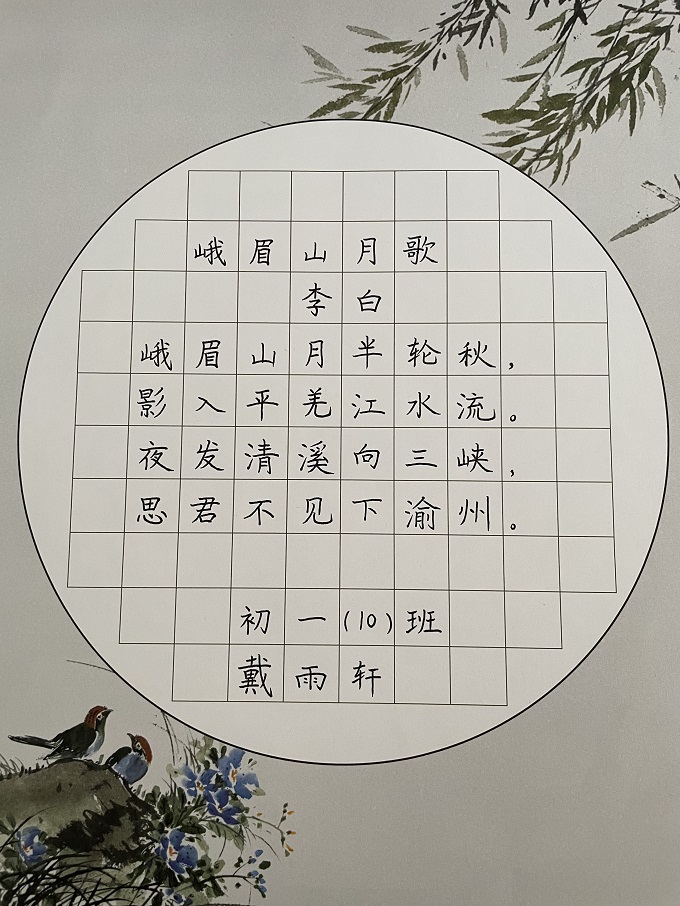 峨眉山月歌
李白
峨眉山月半轮秋，
影入平羌江水流。
夜发清溪向三峡，
思君不见下渝州。
初一(10)班
戴雨轩